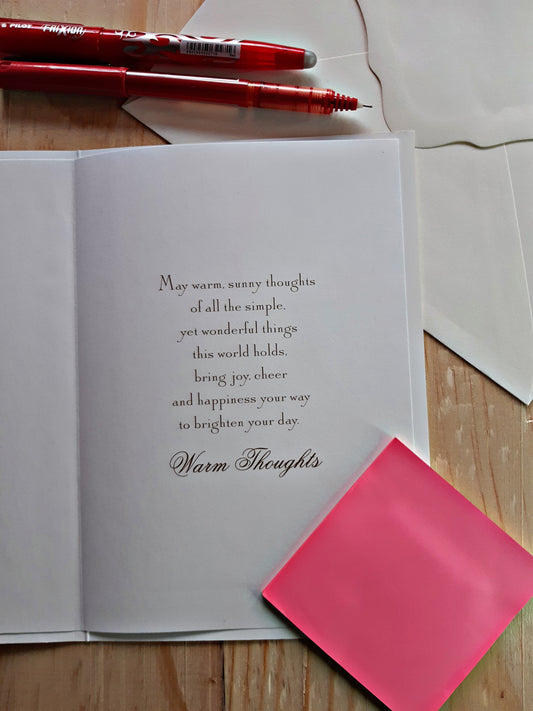 PILOT FRIXION
May warm, sunny thoughts
of all the simple,
yet wonderful things
this world holds,
bring joy, cheer
and happiness your way
to brighten your day.
Warm Thoughts